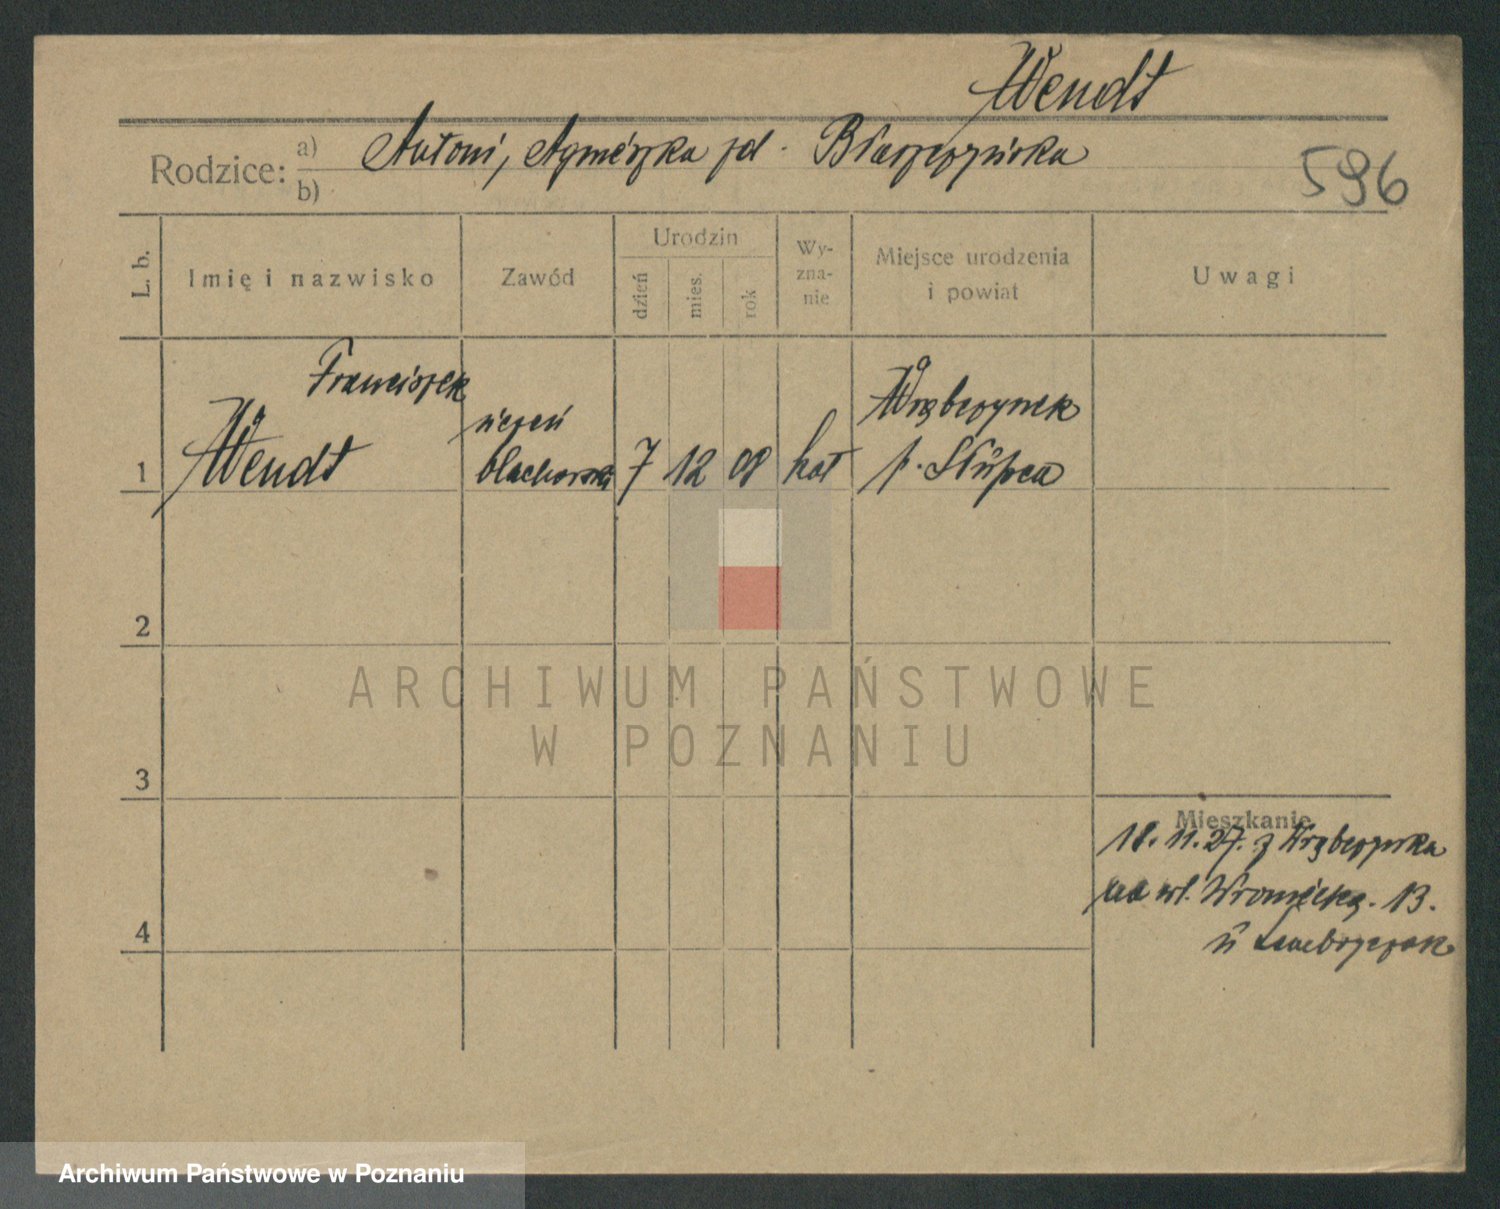 Wendt
Rodzice: a) Antoni, Agnieszka zd. Błaszczyńska
b)
596
L. b.
Imię i nazwisko
Zawód
Urodzin
dzień
mies.
rok
Wy-
zna-
nie
Miejsce urodzenia
i powiat
Uwagi
1
Franciszek
Wendt
uczeń
blacharski
7
12
08
kat
Wrąbczynek
p. Słupca
2
3
4
Mieszkanie
18.11.27. z Wrąbczynka
na ul. Wroniecką. 13.
ARCHIWUM PAŃSTWOWE
W POZNANIU
Archiwum Państwowe w Poznaniu